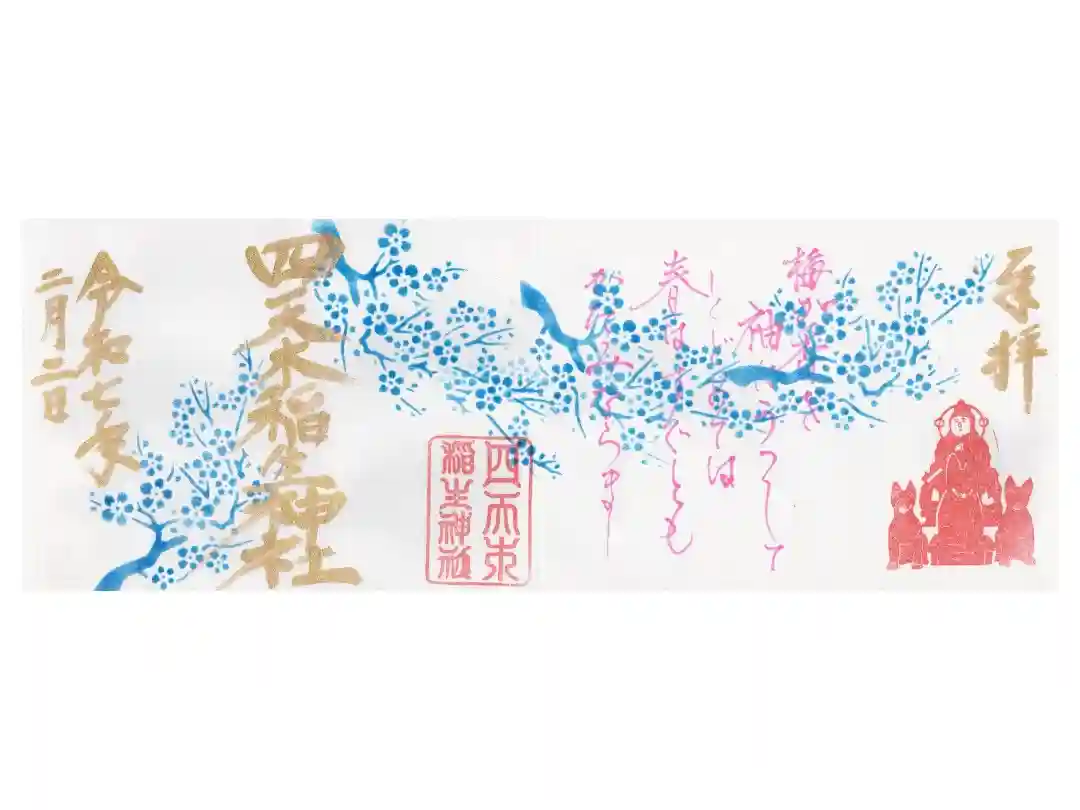 奉拝
梅が香を
袖にうつして
とどめてば
春はすぐとも
かたみならまし
四天木
稲生神社
四天木稲生神社
令和七年
二月二日